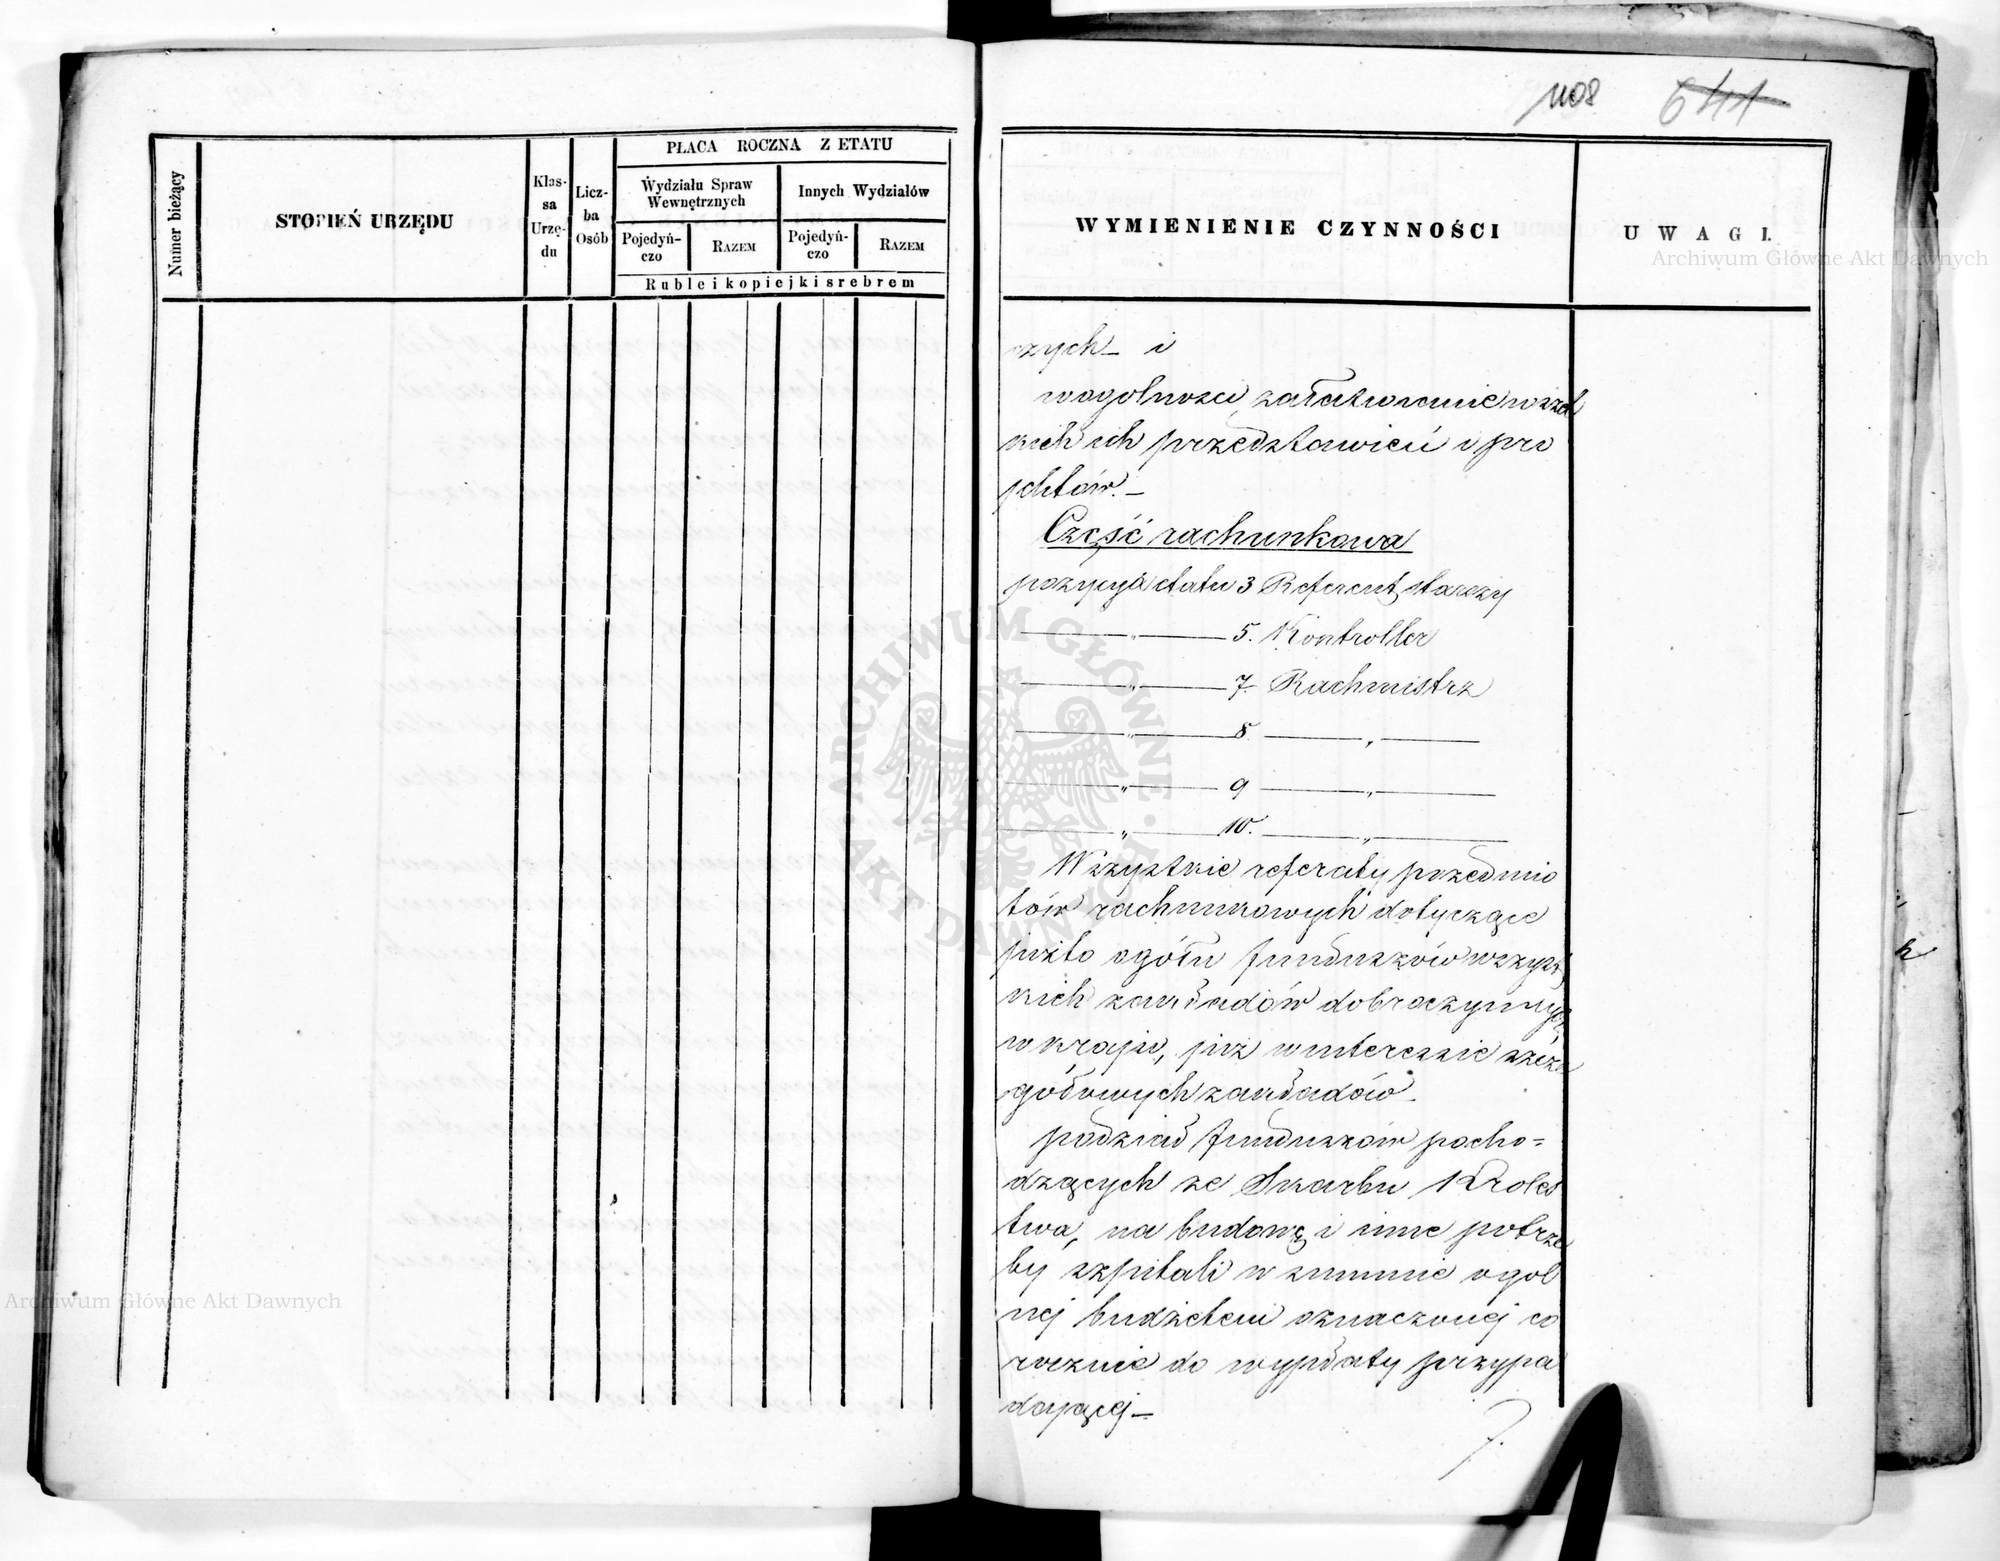 1108 641
Numer bieżący
STOPIEŃ URZĘDU
Klas-
sa
Urzę-
du
Licz-
ba
Osób
PŁACA ROCZNA Z ETATU
Wydziału Spraw
Wewnętrznych
Innych Wydziałów
Pojedyń-
czo
RAZEM
Pojedyń-
czo
RAZEM
Ruble i kopiejki srebrem
WYMIENIENIE CZYNNOŚCI
UWAGI.
czych i
wogolności załatwienie wszel
kich ich przedstawień i pro
jektów. –
Część rachunkowa
pozycya etatu 3 Referent starszy
— „ — 5. Kontroller
— „ — 7. Rachmistrz
— „ — 8 — „ —
— „ — 9 — „ —
— „ — 10. — „ —
Wszystkie referaty przedmio
tów rachunkowych dotyczące
jużto ogółu funduszów wszyst
kich zakładów dobroczynnych
w kraju, już w interessie szcze
gółowych zakładów
podział funduszów pocho=
dzących ze Skarbu Króles
twa, na budowę i inne potrze
by szpitali w summie ogol
nej budżetem oznaczonej co
rocznie do wypłaty przypa
dającej –
Archiwum Główne Akt Dawnych
Archiwum Główne Akt Dawnych
ARCHIWUM GŁÓWNE AKT DAWNYCH